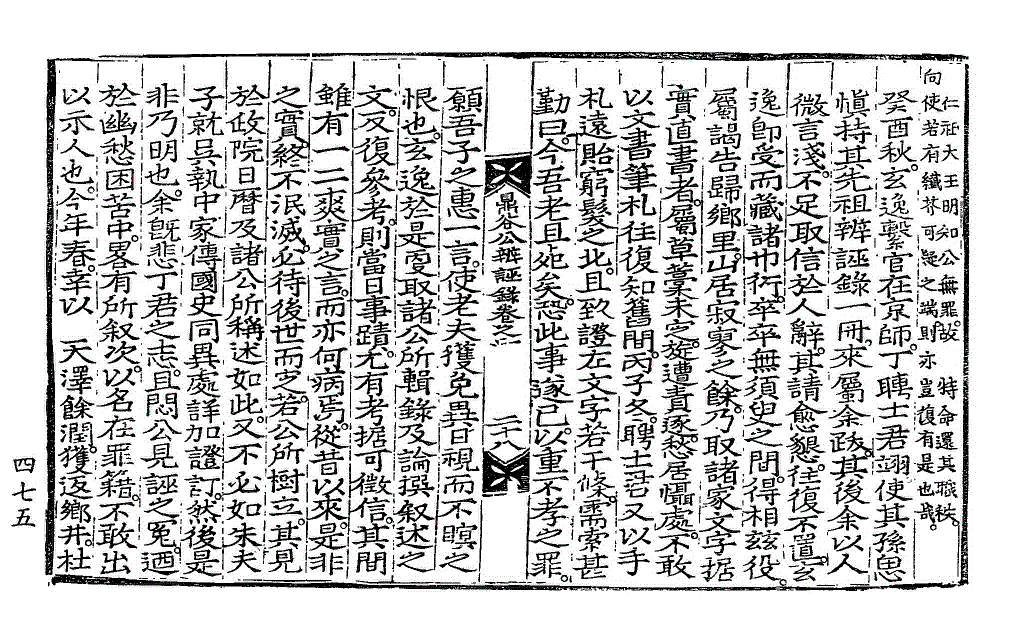 仁祉大王明知公無罪故 特命還其職秩
向使若有纖芥可疑之端則亦豈復有是也哉
癸酉秋玄逸繫官在京師丁聃士君翊使其孫思
愼持其先祖辨誣錄一冊來屬余跋其後余以人
微言淺不足取信於人辭其請愈懇往復不置玄
逸卽受而藏諸巾衍卒卒無須臾之間得相玆役
屬謁告歸鄉里山居寂寥之餘乃取諸家文字據
實直書者屬草藁未定旋遭責逐愁居懾處不敢
以文書筆札往復知舊間丙子冬聃士甫又以手
札遠貽窮髮之北且致證左文字若干條需索甚
勤曰今吾老且死矣恐此事遂已以重不孝之罪
鼎谷公辨誣錄卷之二 二十八
願吾子之惠一言使老夫獲免異日視而不瞑之
恨也玄逸於是更取諸公所輯錄及論撰叙述之
文反復參考則當日事蹟尤有考据可徵信其間
雖有一二爽實之言而亦何病焉從昔以來是非
之實終不泯滅必待後世而定若公所樹立其見
於政院日曆及諸公所稱述如此又不必如朱夫
子就吳執中家傳國史同異處詳加證訂然後是
非乃明也余旣悲丁君之志且悶公見誣之冤迺
於幽愁困苦中畧有所叙次以名在罪籍不敢出
以示人也今年春幸以 天澤餘潤獲返鄉井杜
四七五